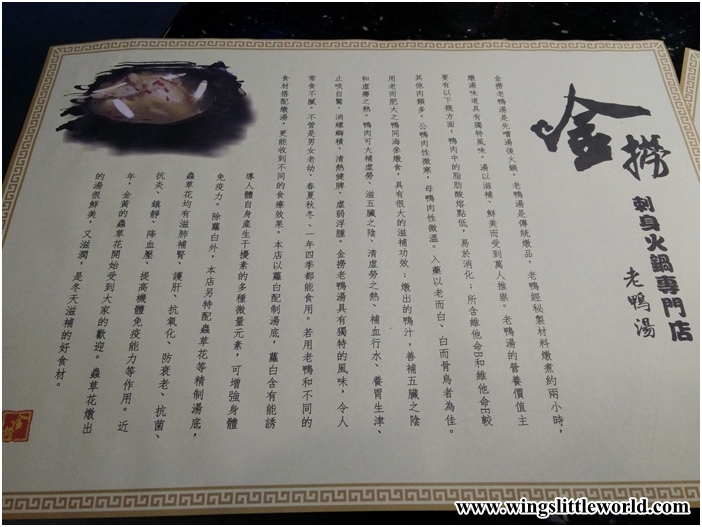 金撈
刺身火鍋專門店
老鴨湯
金撈老鴨湯是先嚐湯後火鍋。老鴨湯是傳統燉品，老鴨經秘製材料燉煮約兩小時，
燉湯味道具有獨特風味。湯以滋補、鮮美而受到萬人推崇。老鴨湯的營養價值主
要有以下幾方面，鴨肉中的脂肪酸熔點低，易於消化；所含維他命B和維他命E較
其他肉類多。公鴨肉性微寒，母鴨肉性微溫。入藥以老而白、白而骨烏者為佳。
用老而肥大之鴨同海參燉食，具有很大的滋補功效；燉出的鴨汁，善補五臟之陰
和虛癆之熱。鴨肉可大補虛勞、滋五臟之陰、清虛勞之熱、補血行水、養胃生津、
止咳自驚、消螺螄積、清熱健脾、虛弱浮腫。金撈老鴨湯具有獨特的風味，令人
常食不膩。不管是男女老幼，春夏秋冬、一年四季都能食用。若用老鴨和不同的
食材搭配燉湯，更能收到不同的食療效果。本店以蘿白配制湯底，蘿白含有能誘
導人體自身產生干擾素的多種微量元素，可增強身體
免疫力。除蘿白外，本店另特配蟲草花等精制湯底，
蟲草花均有滋肺補腎、護肝、抗氧化、防衰老、抗菌、
抗炎、鎮靜、降血壓、提高機體免疫能力等作用。近
年，金黃的蟲草花開始受到大家的歡迎。蟲草花燉出
的湯很鮮美，又滋潤，是冬天滋補的好食材。
www.wingslittleworld.com